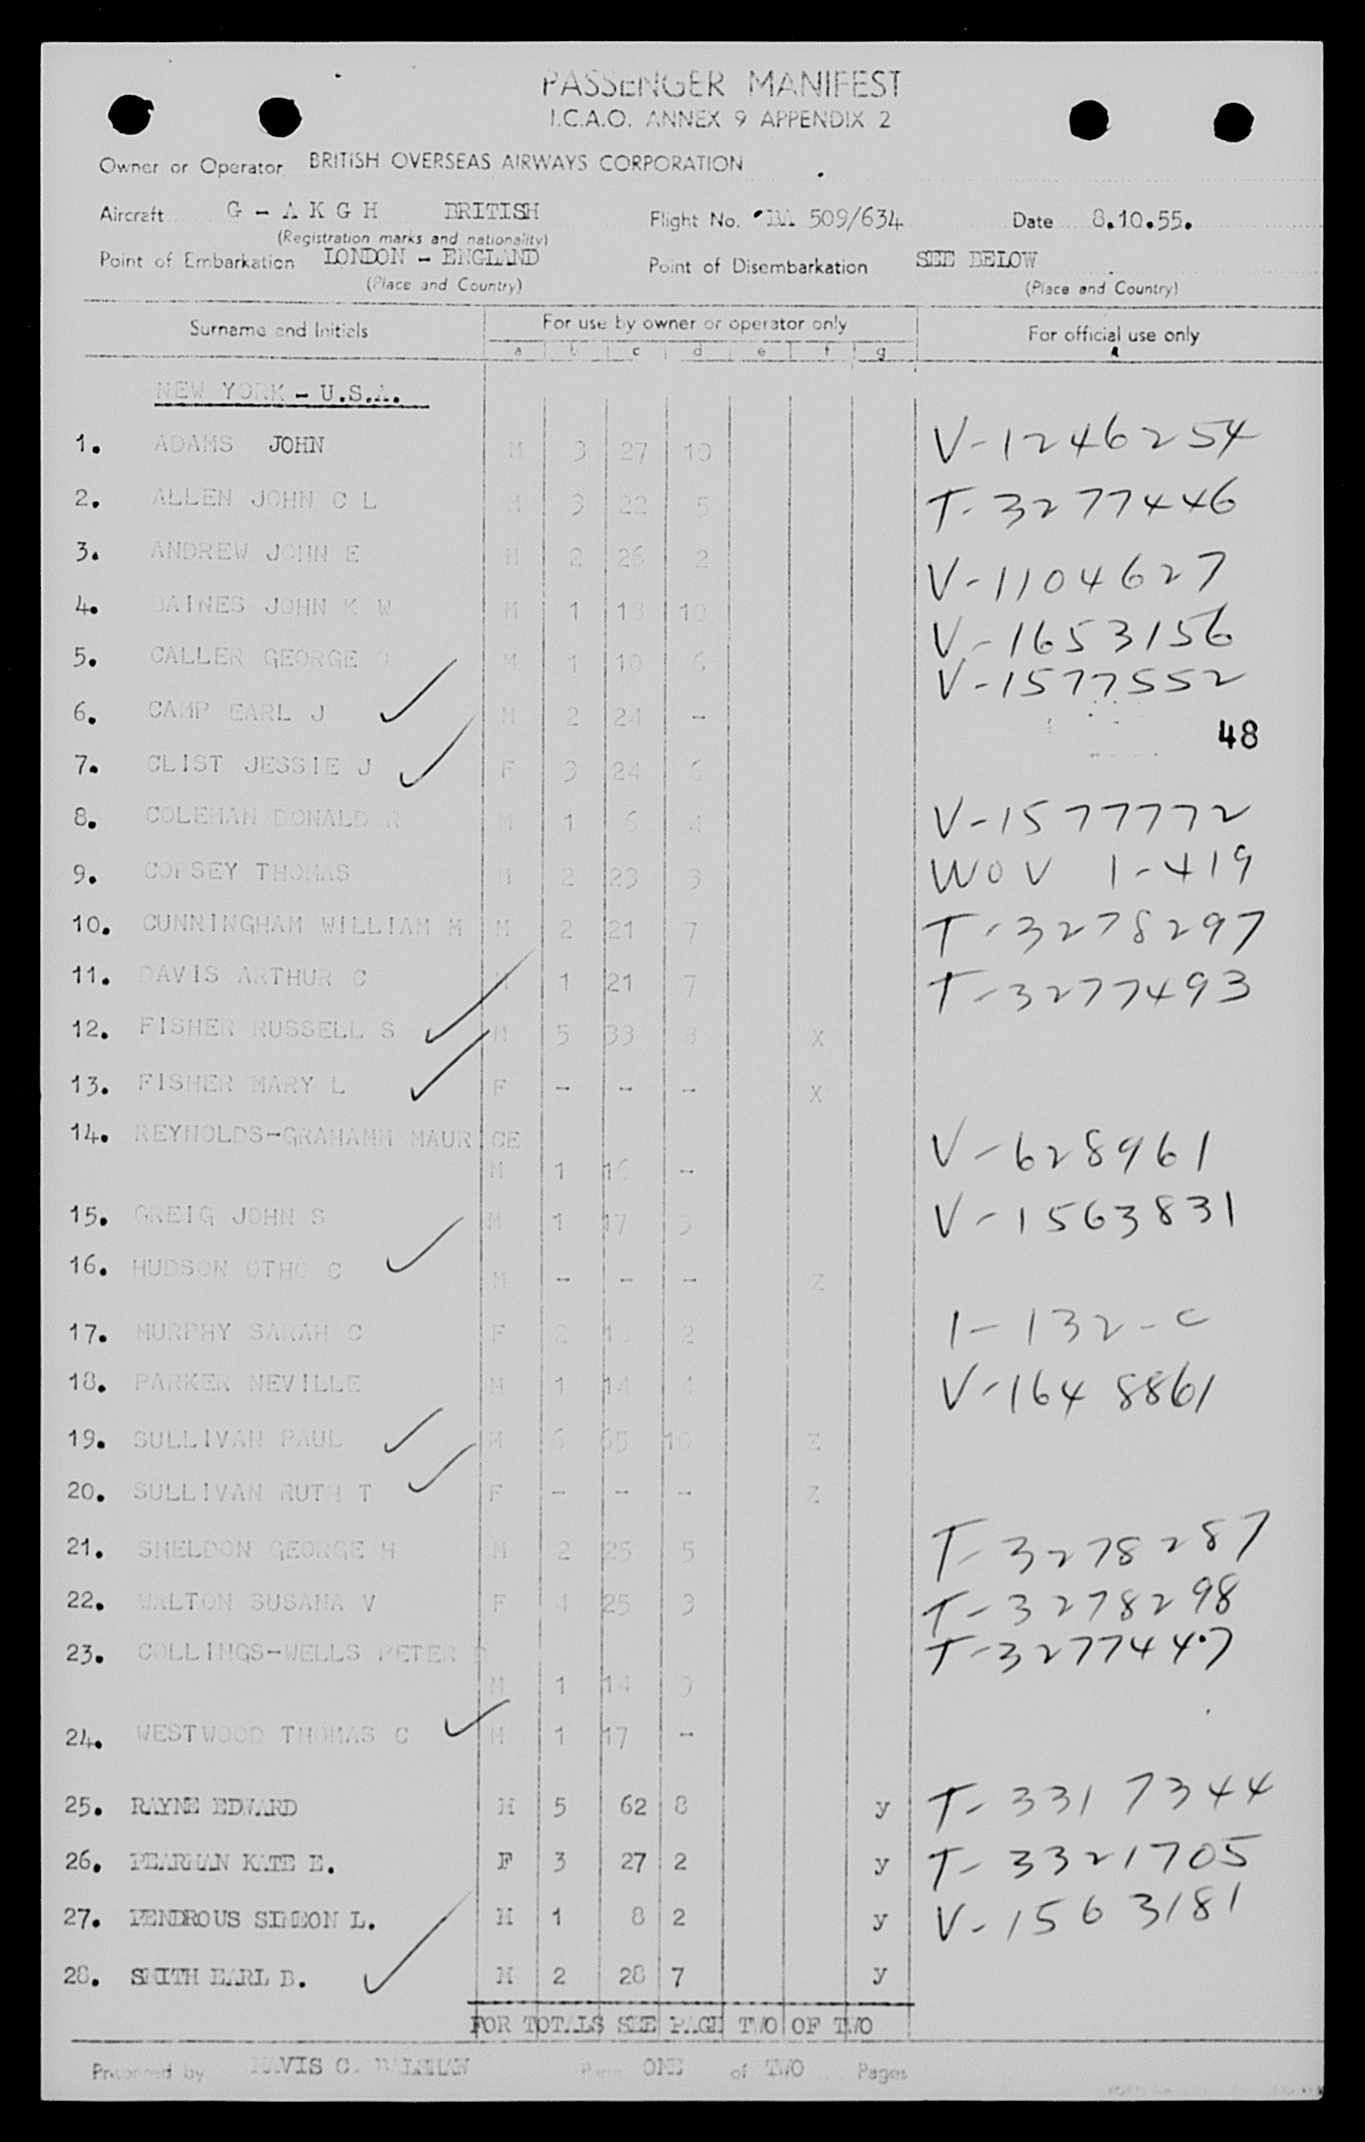 PASSENGER MANIFEST
I.C.A.O. ANNEX 9 APPENDIX 2
Owner or Operator BRITISH OVERSEAS AIRWAYS CORPORATION
Aircraft G - A K G H BRITISH Flight No. BA 509/634 Date 8.10.55.
(Registration marks and nationality)
Point of Embarkation LONDON - ENGLAND Point of Disembarkation SEE BELOW
(Place and Country) (Place and Country)
Surname and Initials For use by owner or operator only For official use only
a b c d e f g
NEW YORK - U.S.A.
1. ADAMS JOHN M 3 27 10 V-1246254
2. ALLEN JOHN C L M 3 22 5 T-3277446
3. ANDREW JOHN E M 2 26 2 V-1104627
4. BAINES JOHN K W M 1 18 10 V-1653156
5. CALLER GEORGE M 1 10 6 V-1577552
6. CAMP EARL J M 2 24 -
48
7. CLIST JESSIE J F 3 24 6
8. COLEMAN DONALD R M 1 6 4 V-1577772
9. COPSEY THOMAS M 2 23 3 WOV 1-419
10. CUNNINGHAM WILLIAM M M 2 21 7 T-3278297
11. DAVIS ARTHUR C 1 21 7 T-3277493
12. FISHER RUSSELL S M 5 33 8 X
13. FISHER MARY L F - - - X
14. REYNOLDS-GRAHAMM MAURICE
M 1 16 - V-628961
15. GREIG JOHN S M 1 17 3 V-1563831
16. HUDSON OTHO C M - - - Z
17. MURPHY SARAH C F 2 2 1-132-C
18. PARKER NEVILLE M 1 14 4 V-1648861
19. SULLIVAN PAUL M 6 65 10 Z
20. SULLIVAN RUTH T F - - - Z
21. SHELDON GEORGE H M 2 25 5 T-3278287
22. WALTON SUSANA V F 4 25 3 T-3278298
23. COLLINGS-WELLS PETER T-3277447
M 1 14 9
24. WESTWOOD THOMAS C M 1 17 -
25. RAYNE EDWARD M 5 62 8 y T-3317344
26. PEARMAN KATE E. F 3 27 2 y T-3321705
27. PENDROUS SIMEON L. M 1 8 2 y V-1563181
28. SMITH EARL B. M 2 28 7 y
FOR TOTALS SEE PAGE TWO OF TWO
Prepared by MAVIS C. Page ONE of TWO Pages